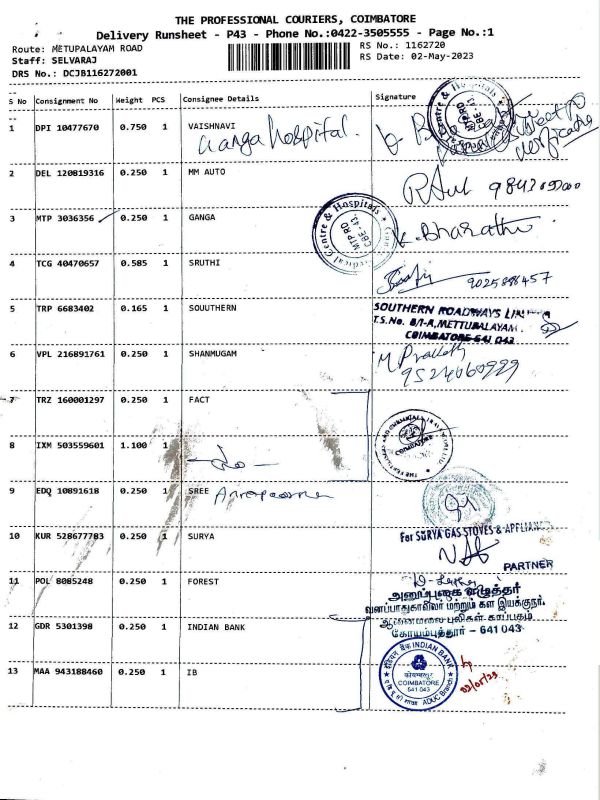 THE PROFESSIONAL COURIERS, COIMBATORE
Delivery Runsheet - P43 - Phone No.:0422-3505555 - Page No.:1
Route: METUPALAYAM ROAD
RS No.: 1162720
Staff: SELVARAJ
RS Date: 02-May-2023
DRS No.: DCJB116272001
S No Consignment No Weight PCS Consignee Details Signature
1 DPI 10477670 0.750 1 VAISHNAVI
Ganga hospital.
2 DEL 120819316 0.250 1 MM AUTO
3 MTP 3036356 0.250 1 GANGA
K. Bharathi
MTPRD
CBE-43
4 TCG 40470657 0.585 1 SRUTHI
9025898457
5 TRP 6683402 0.165 1 SOUUTHERN
SOUTHERN ROADWAYS
T.S.No. 8/1-A, METTUPALAYAM
COIMBATORE-641 043
6 VPL 216891761 0.250 1 SHANMUGAM
9524060929
7 TRZ 160001297 0.250 1 FACT
8 IXM 503559601 1.100 1
COIMBATORE
9 EDQ 10891618 0.250 1 SREE Annapoorna
10 KUR 528677783 0.250 1 SURYA
For SURYA GAS STOVES &
PARTNER
11 POL 8085248 0.250 1 FOREST
வனப்பாதுகாவலர் மற்றும் கள இயக்குநர்
ஆனைமலை புலிகள் காப்பகம்
கோயம்புத்தூர் - 641 043
12 GDR 5301398 0.250 1 INDIAN BANK
13 MAA 943188460 0.250 1 IB
INDIAN BANK
COIMBATORE
641 043
02/05/23